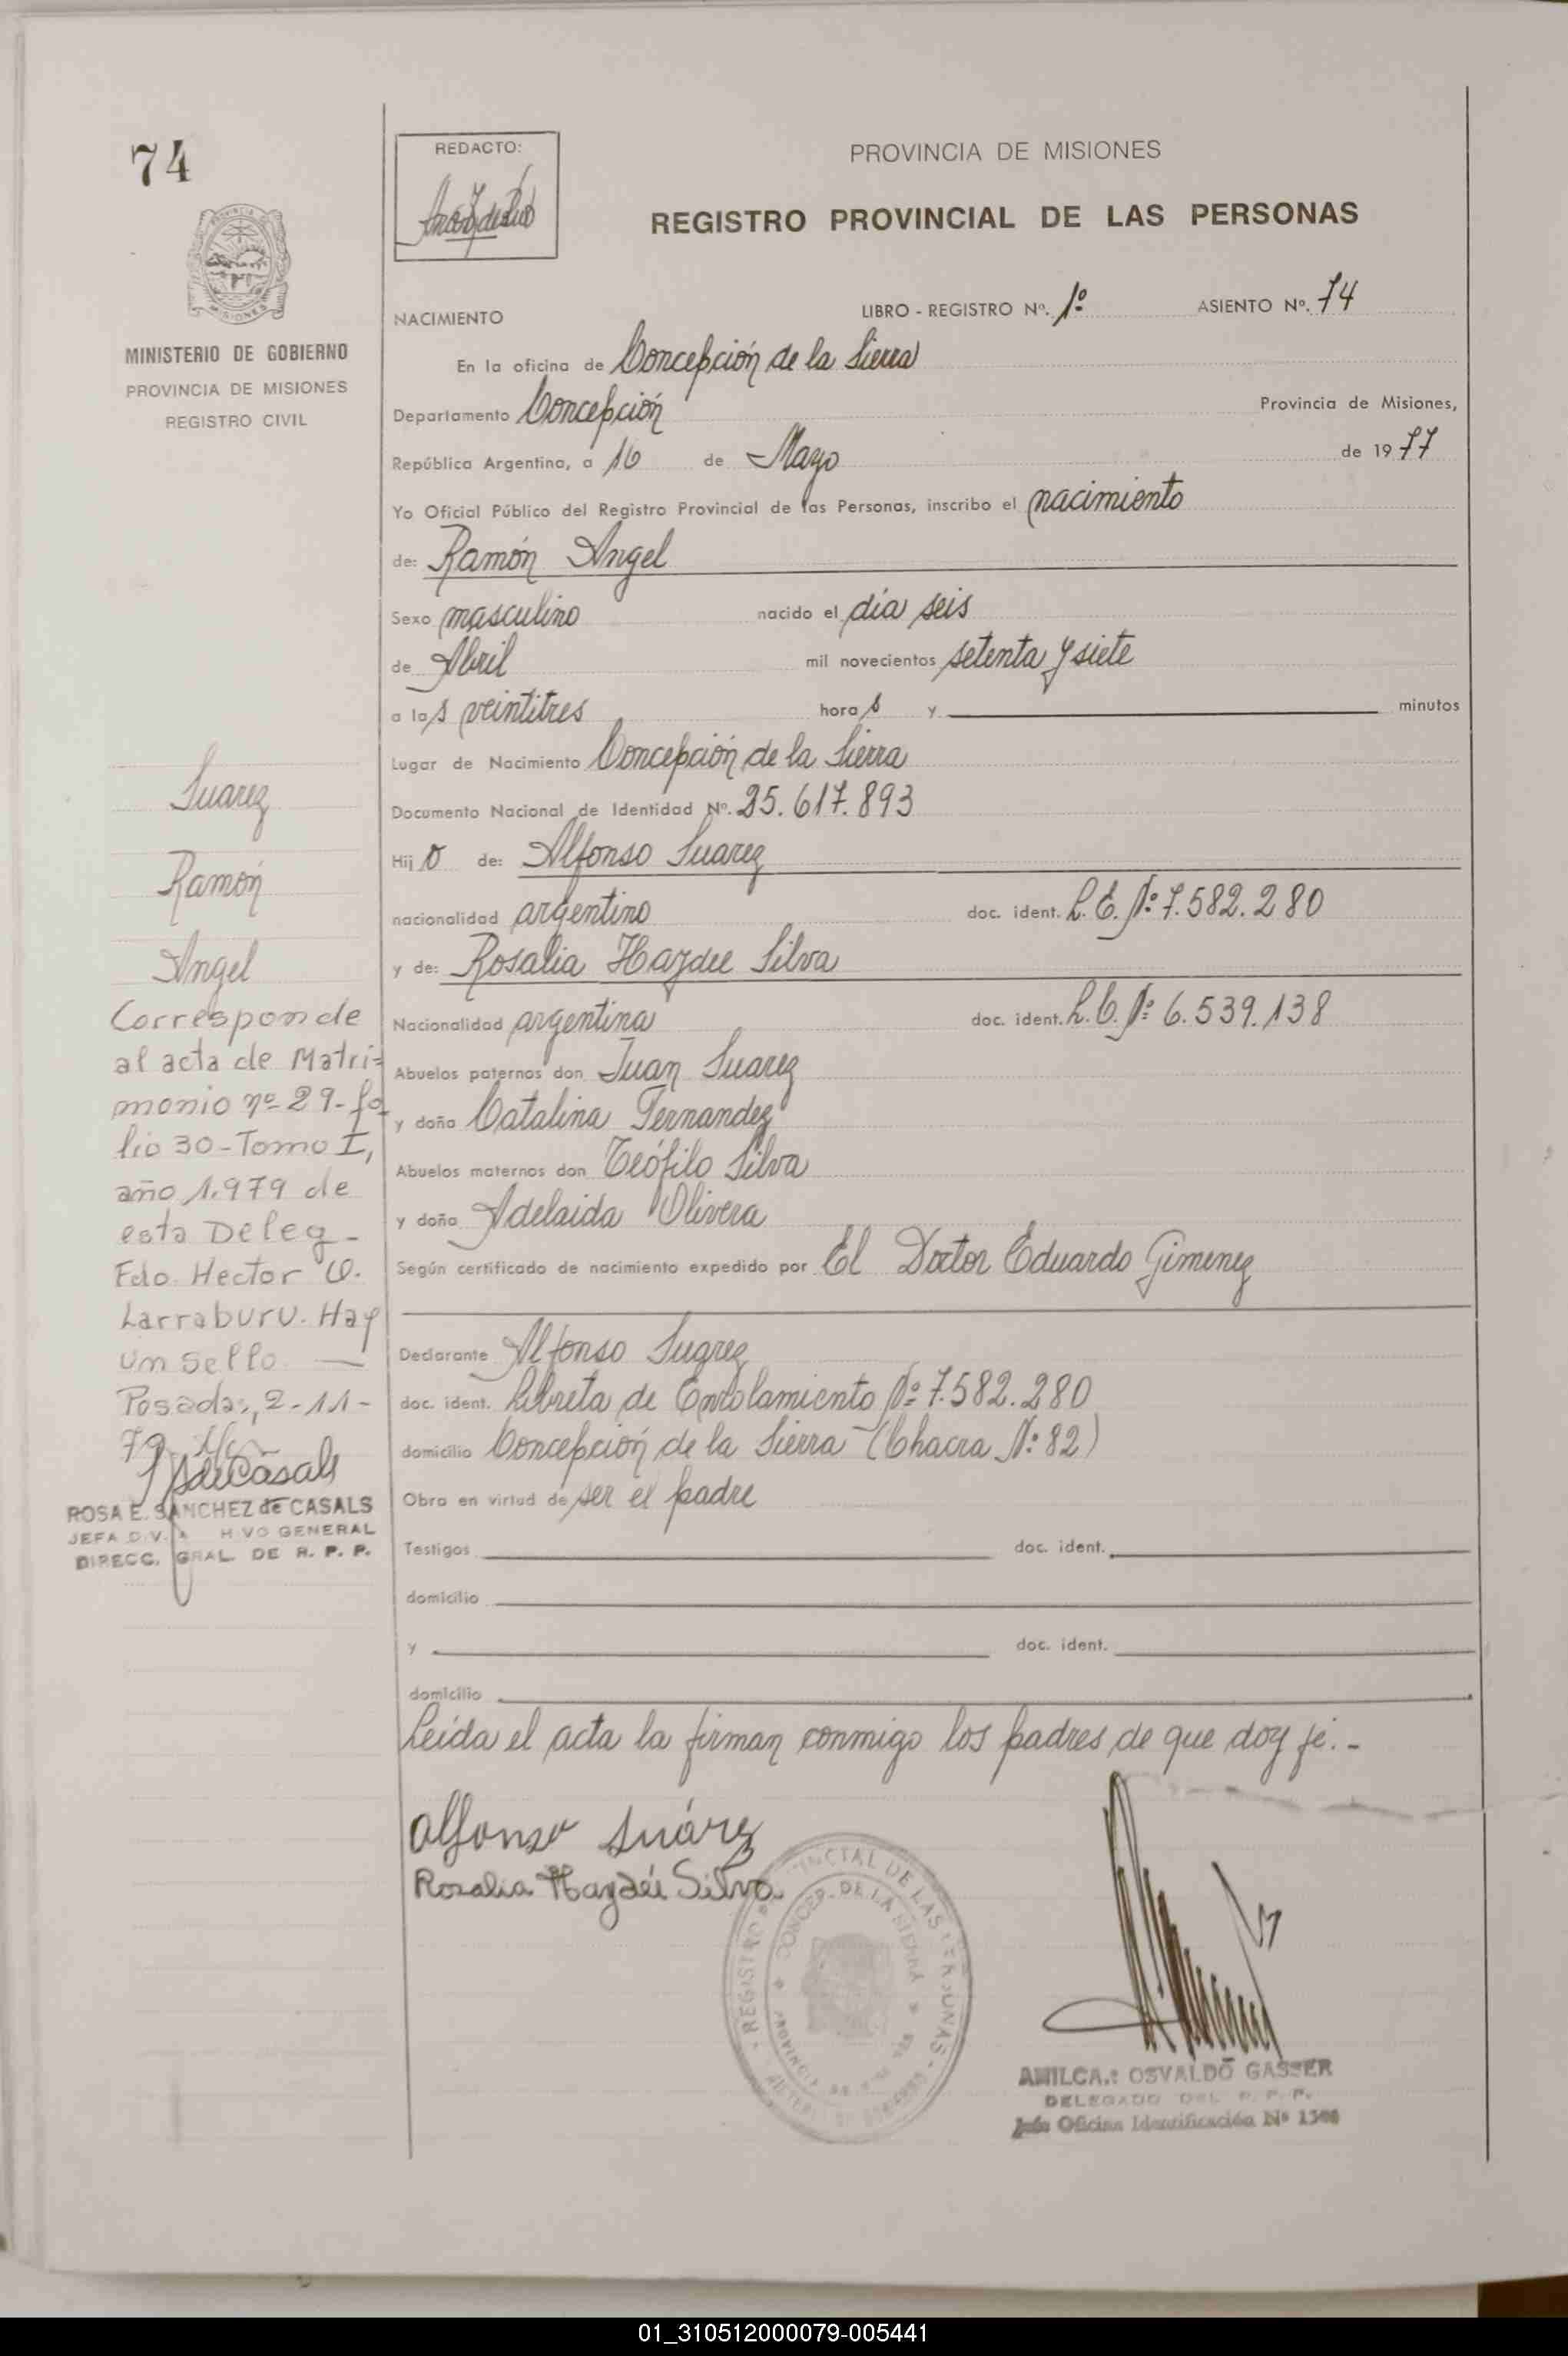 74
MINISTERIO DE GOBIERNO
PROVINCIA DE MISIONES
REGISTRO CIVIL
REDACTO:
PROVINCIA DE MISIONES
REGISTRO PROVINCIAL DE LAS PERSONAS
NACIMIENTO LIBRO - REGISTRO Nº. 1º ASIENTO Nº. 74
En la oficina de Concepción de la Sierra
Departamento Concepción Provincia de Misiones,
República Argentina, a 16 de Mayo de 1977
Yo Oficial Público del Registro Provincial de las Personas, inscribo el nacimiento
de: Ramón Angel
Sexo masculino nacido el día seis
de Abril mil novecientos setenta y siete
a las veintitres horas y minutos
Lugar de Nacimiento Concepción de la Sierra
Documento Nacional de Identidad Nº. 25.617.893
Hijo de: Alfonso Suarez
nacionalidad argentino doc. ident. L.E. Nº 7.582.280
y de: Rosalia Haydee Silva
Nacionalidad argentina doc. ident. L.C. Nº 6.539.138
Abuelos paternos don Juan Suarez
y doña Catalina Fernandez
Abuelos maternos don Teófilo Silva
y doña Adelaida Olivera
Según certificado de nacimiento expedido por El Doctor Eduardo Gimenez
Declarante Alfonso Suarez
doc. ident. Libreta de Enrolamiento Nº 7.582.280
domicilio Concepción de la Sierra (Chacra Nº 82)
Obra en virtud de ser el padre
Testigos doc. ident.
domicilio
y doc. ident.
domicilio
Leída el acta la firman conmigo los padres de que doy fé.-
Suarez
Ramón
Angel
Corresponde
al acta de Matri-
monio nº 29-fo
lio 30-Tomo I,
año 1.979 de
esta Deleg-
Fdo. Hector O.
Larraburu. Hay
un sello. —
Posadas, 2-11-
79
ROSA E. SANCHEZ de CASALS
JEFA DIV. HIVO GENERAL
DIRECC. GRAL. DE R. P. P.
Alfonso Suárez
Rosalia Haydée Silva
REGISTRO PROVINCIAL DE LAS PERSONAS
CONCEP. DE LA SIERRA
AMILCAR OSVALDO GASSER
DELEGADO DEL R. P. P.
Jefe Oficina Identificación Nº
01_310512000079-005441